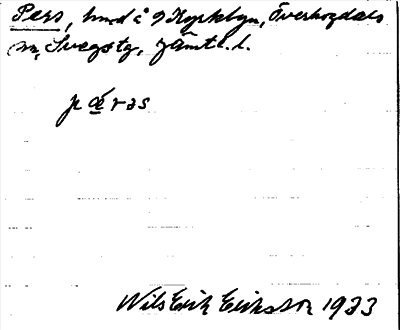 Pers, hmd å 9 Kyrkbyn, Överhogdals
sn, Svegs tg, Jämtl. l.
pǽras
Nils Erik Eriksson 1933